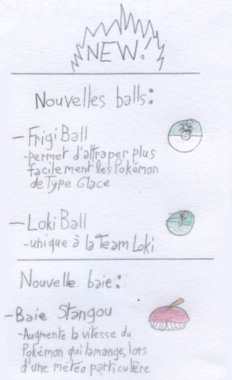 NEW!
Nouvelles balls:
- Frigi Ball
- permet d'attraper plus
facilement les Pokémon
de Type Glace
- Loki Ball
- unique à la Team Loki
Nouvelle baie:
- Baie Stangou
- Augmente la vitesse du
Pokémon qui la mange, lors
d'une météo particulière